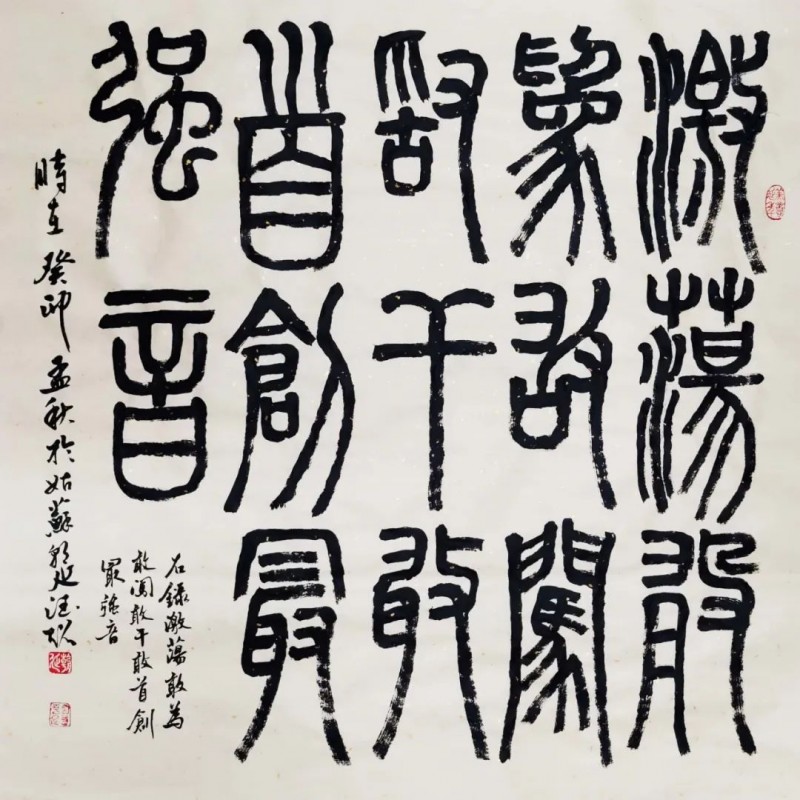 激蕩敢
為敢闖
敢干敢
首創最
强音
右錄激蕩敢為
敢闖敢干敢首創
最強音
時在癸卯孟秋於姑蘇